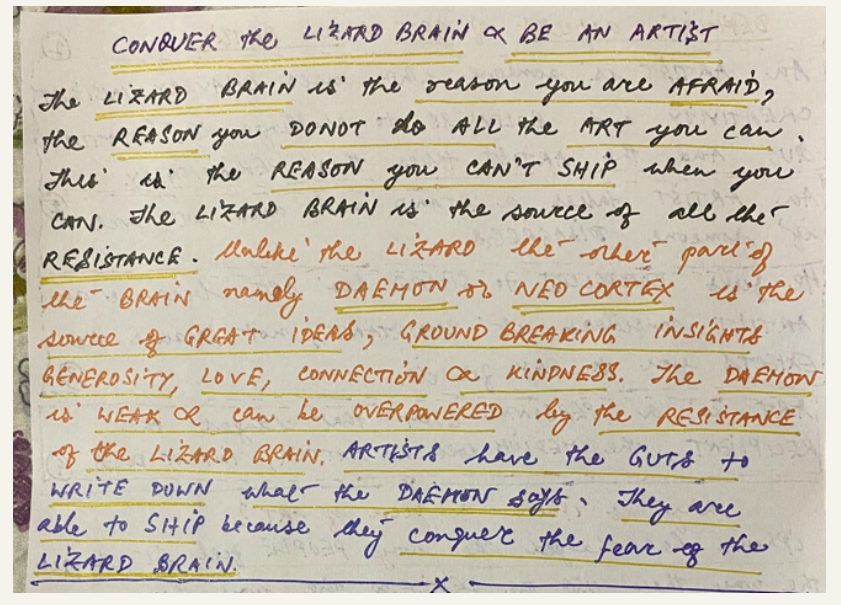 CONQUER the LIZARD BRAIN & BE AN ARTIST
The LIZARD BRAIN is the reason you are AFRAID,
the REASON you DONOT do ALL the ART you can.
This is the REASON you CAN'T SHIP when you
CAN. The LIZARD BRAIN is the source of all the
RESISTANCE. Unlike the LIZARD the other part of
the BRAIN namely DAEMON or NEO CORTEX is the
source of GREAT IDEAS, GROUND BREAKING INSIGHTS
GENEROSITY, LOVE, CONNECTION & KINDNESS. The DAEMON
is WEAK & can be OVERPOWERED by the RESISTANCE
of the LIZARD BRAIN. ARTISTS have the GUTS to
WRITE DOWN what the DAEMON says. They are
able to SHIP because they conquer the fear of the
LIZARD BRAIN.